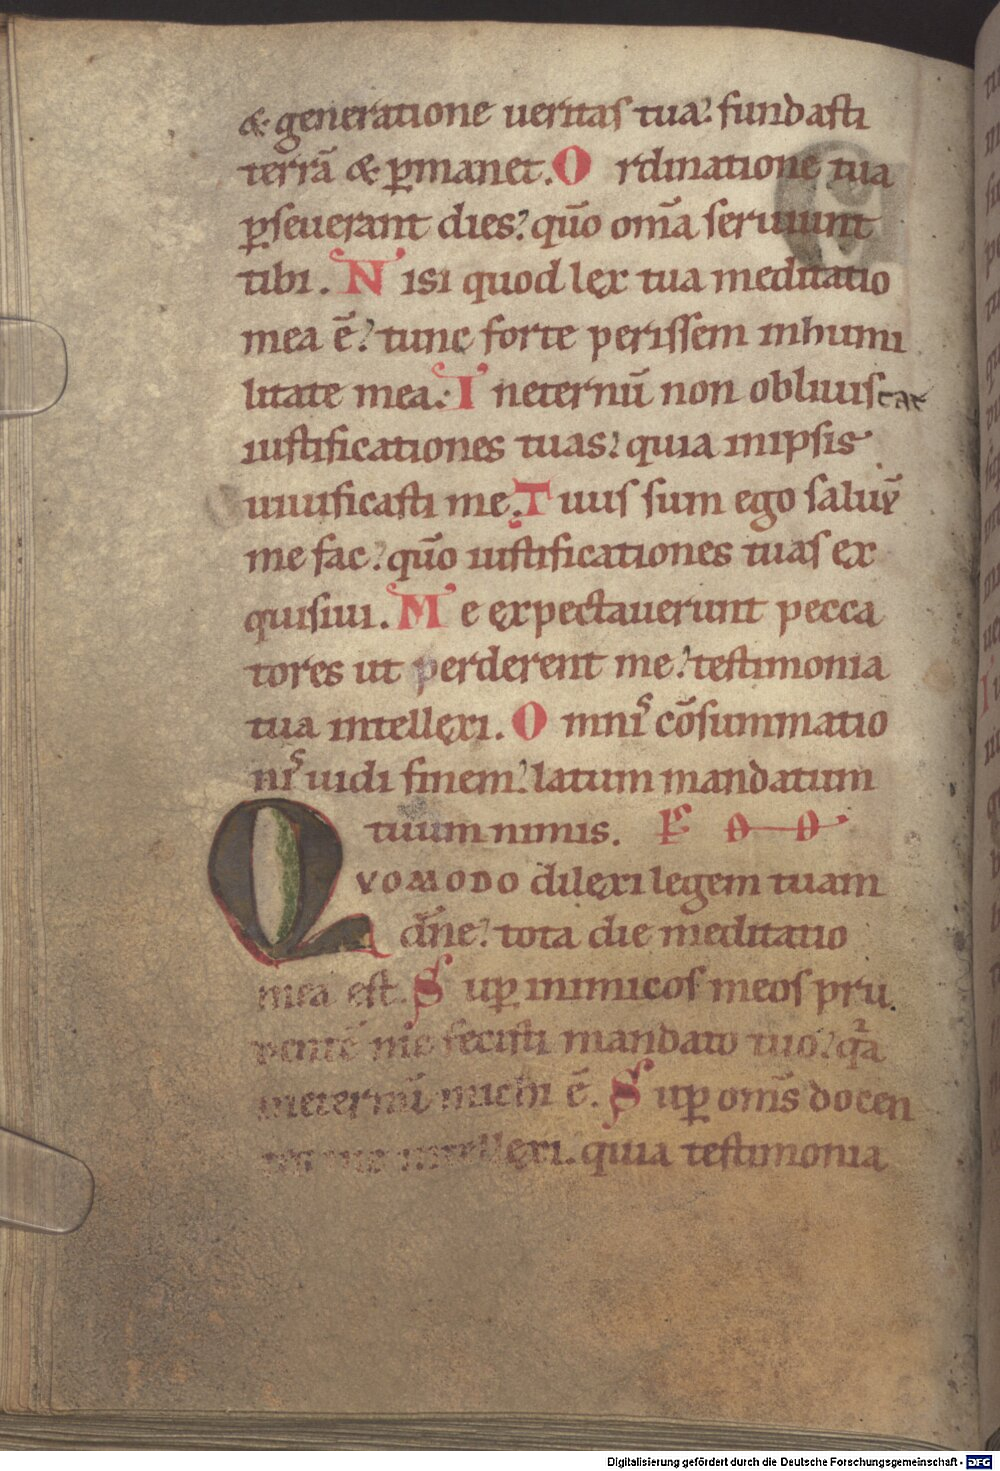 & generatione ueritas tua? fundasti
terrā & p̄manet. Ordinatione tua
p̄seuerant dies? qūo om̄a seruiunt
tibi. Nisi quod lex tua meditatio
mea ē? tunc forte perissem inhumi
litate mea. Ineternū non obliuiscar
iustificationes tuas? quia inipsis
uiuificasti me. Tuus sum ego saluū
me fac? qūo iustificationes tuas ex
quisiui. Me expectauerunt pecca
tores ut perderent me? testimonia
tua intellexi. Omnis cōsummatio
nis uidi finem? latum mandatum
tuum nimis.
QVOMODO dilexi legem tuam
dn̄e? tota die meditatio
mea est. Sup̄ inimicos meos pru
dentē me fecisti mandato tuo? qa
ineternū michi ē. Sup̄ om̄s docen
intellexi. quia testimonia
Digitalisierung gefördert durch die Deutsche Forschungsgemeinschaft - DFG